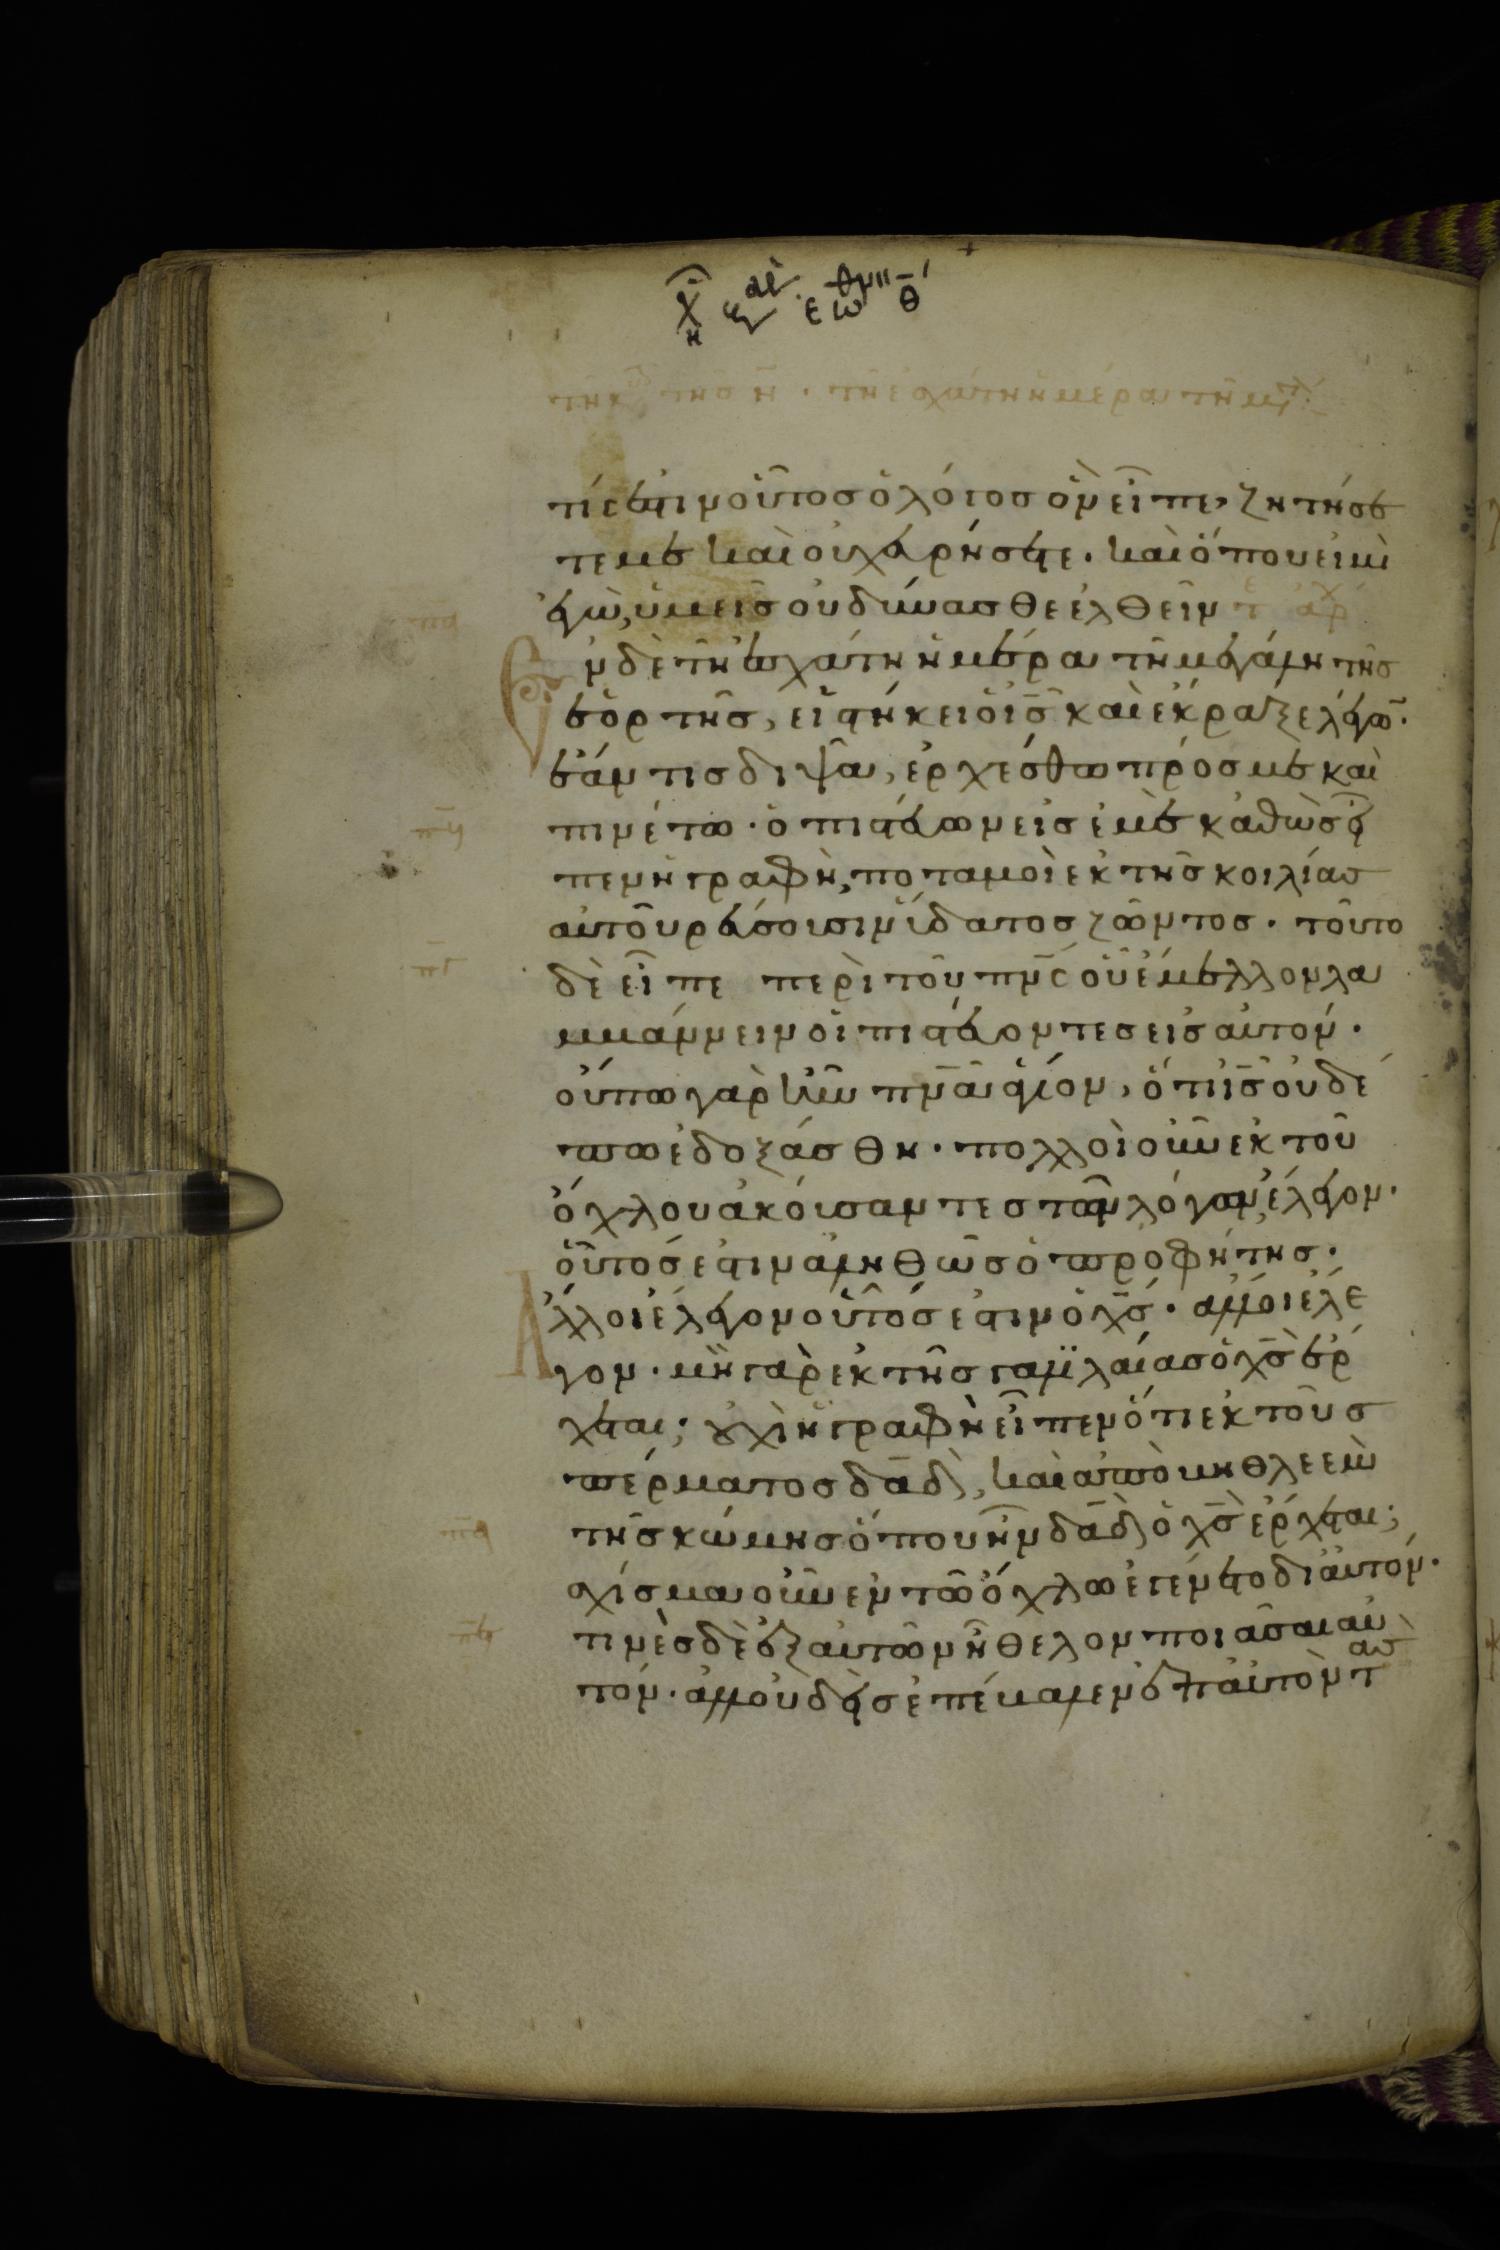 τῇ ἐσχάτη ἡμέρα τῆ μεγ
τίς ἐστιν οὗτος ὁ λόγος ὃν εἶπε, ζητήσε
τέ με καὶ οὐχ εὑρήσετε. καὶ ὅπου εἰμὶ
ἐγὼ, ὑμεῖς οὐ δύνασθε ἐλθεῖν
Ἐν δὲ τῆ ἐσχάτη ἡμέρα τῆ μεγάλη τῆς
ἑορτῆς, εἱστήκει ὁ ις̅ καὶ ἔκραξε λέγων.
ἐάν τις διψᾶ, ἐρχέσθω πρός με καὶ
πινέτω. ὁ πιστεύων εἰς ἐμὲ καθὼς εἶ
πεν ἡ γραφὴ, ποταμοὶ ἐκ τῆς κοιλίας
αὐτοῦ ρεύσουσιν ὕδατος ζῶντος. τοῦτο
δὲ εἶπε περὶ τοῦ πν̅ς οὗ ἔμελλον λα
μμάννειν οἱ πιστεύοντες εἰς αὐτόν.
οὔπω γὰρ ἦν πν̅α ἅγιον, ὅτι ις̅ οὐδέ
πω ἐδοξάσθη. πολλοὶ οὖν ἐκ τοῦ
ὄχλου ἀκούσαντες τῶν λόγων ἔλεγον.
οὗτός ἐστιν ἀληθῶς ὁ προφήτης.
Ἄλλοι ἔλεγον οὗτός ἐστιν ὁ χς̅. ἄλλοι ἔλε
γον. μὴ γὰρ ἐκ τῆς γαλιλαίας ὁ χς̅ ἔρ
χεται; οὐχὶ ἡ γραφὴ εἶπεν ὅτι ἐκ τοῦ σ
πέρματος δα̅δ, καὶ ἀπὸ βηθλεὲμ
τῆς κώμης ὅπου ἦν δα̅δ ὁ χς̅ ἔρχεται;
σχίσμα οὖν ἐν τῶ ὄχλω ἐγένετο δι᾽ αὐτόν.
τινὲς δὲ ἐξ αὐτῶν ἤθελον πιάσαι αὐ
τόν. ἀλλ᾽ οὐδεὶς ἐπέβαλεν ἐπ᾽ αὐτὸν τὰς